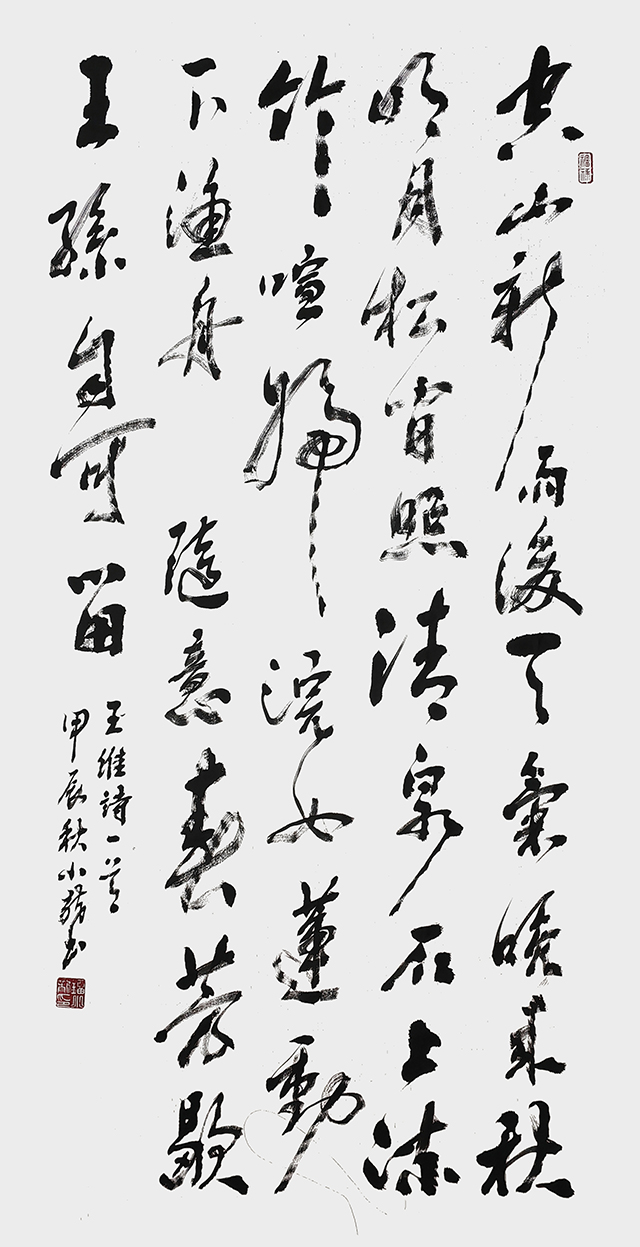 空山新雨後天氣晚来秋
明月松間照清泉石上流
竹喧歸浣女蓮動
下漁舟隨意春芳歇
王孫自可留
王維詩一首
甲辰秋小書